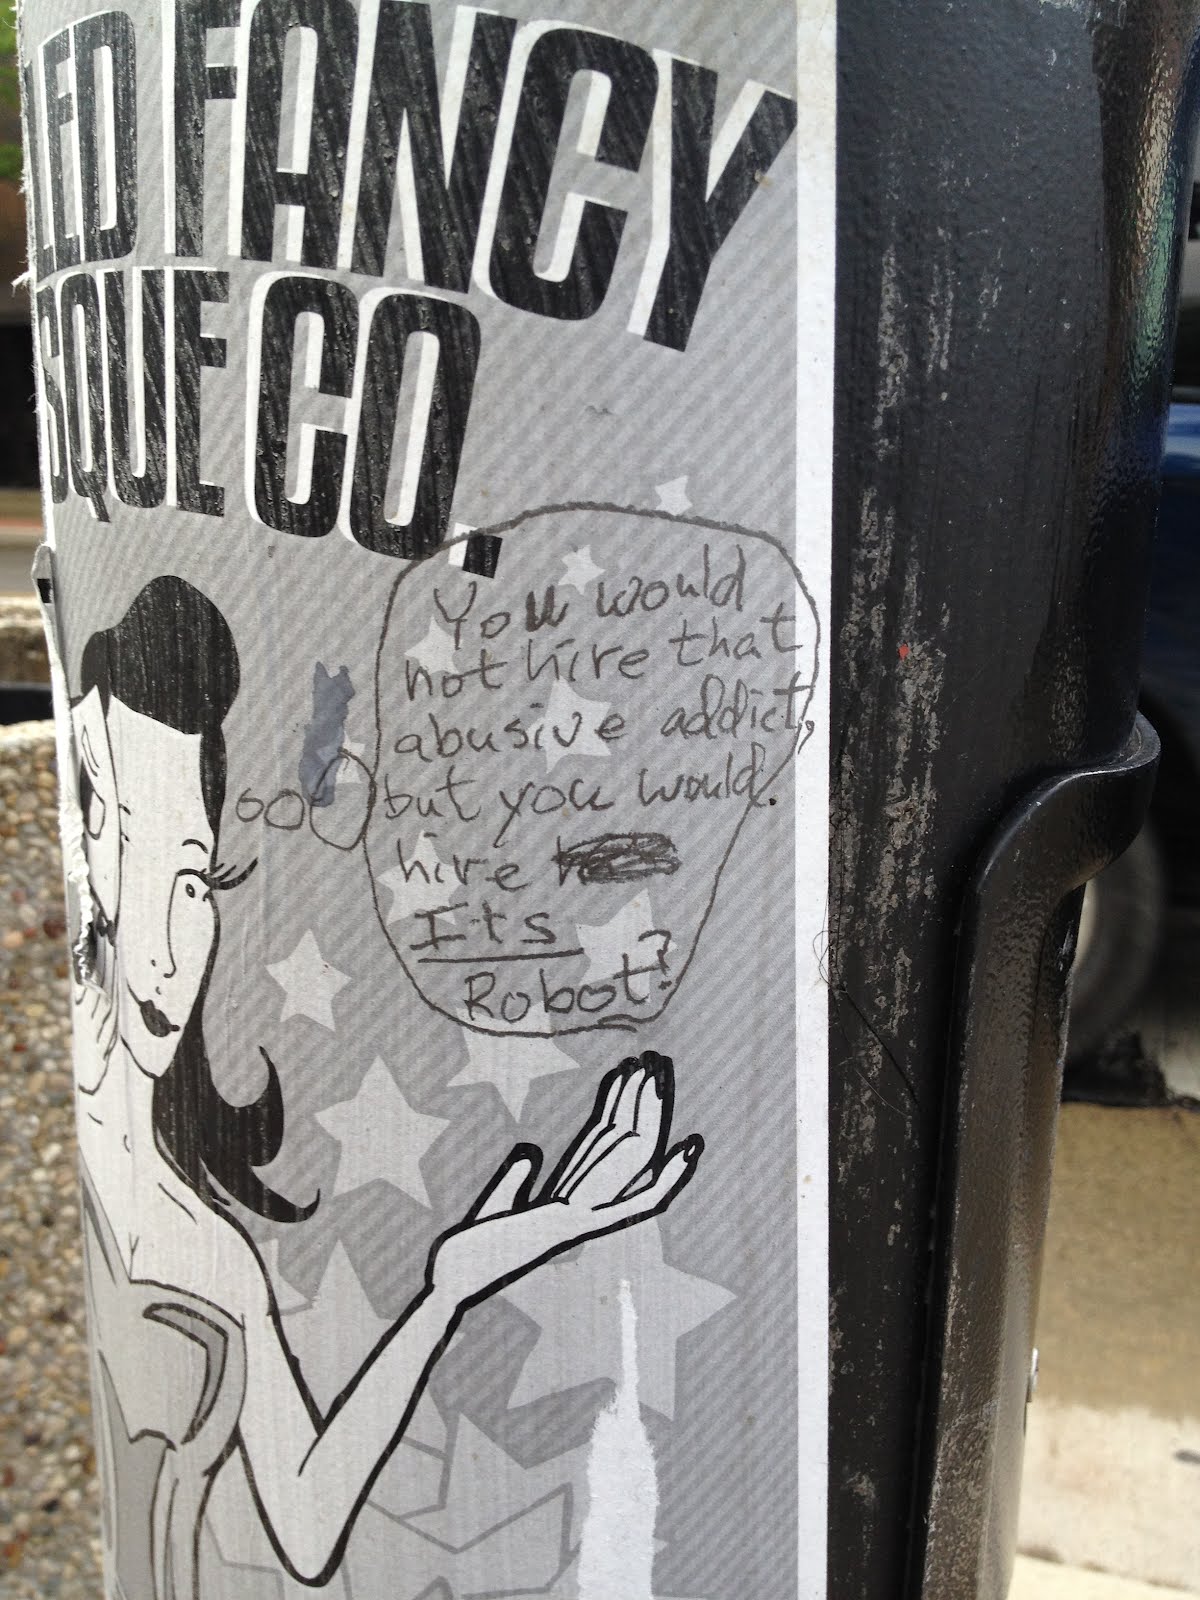 LED FANCY
SQUE CO.
You would
not hire that
abusive addict,
but you would.
hire
Its
Robot?